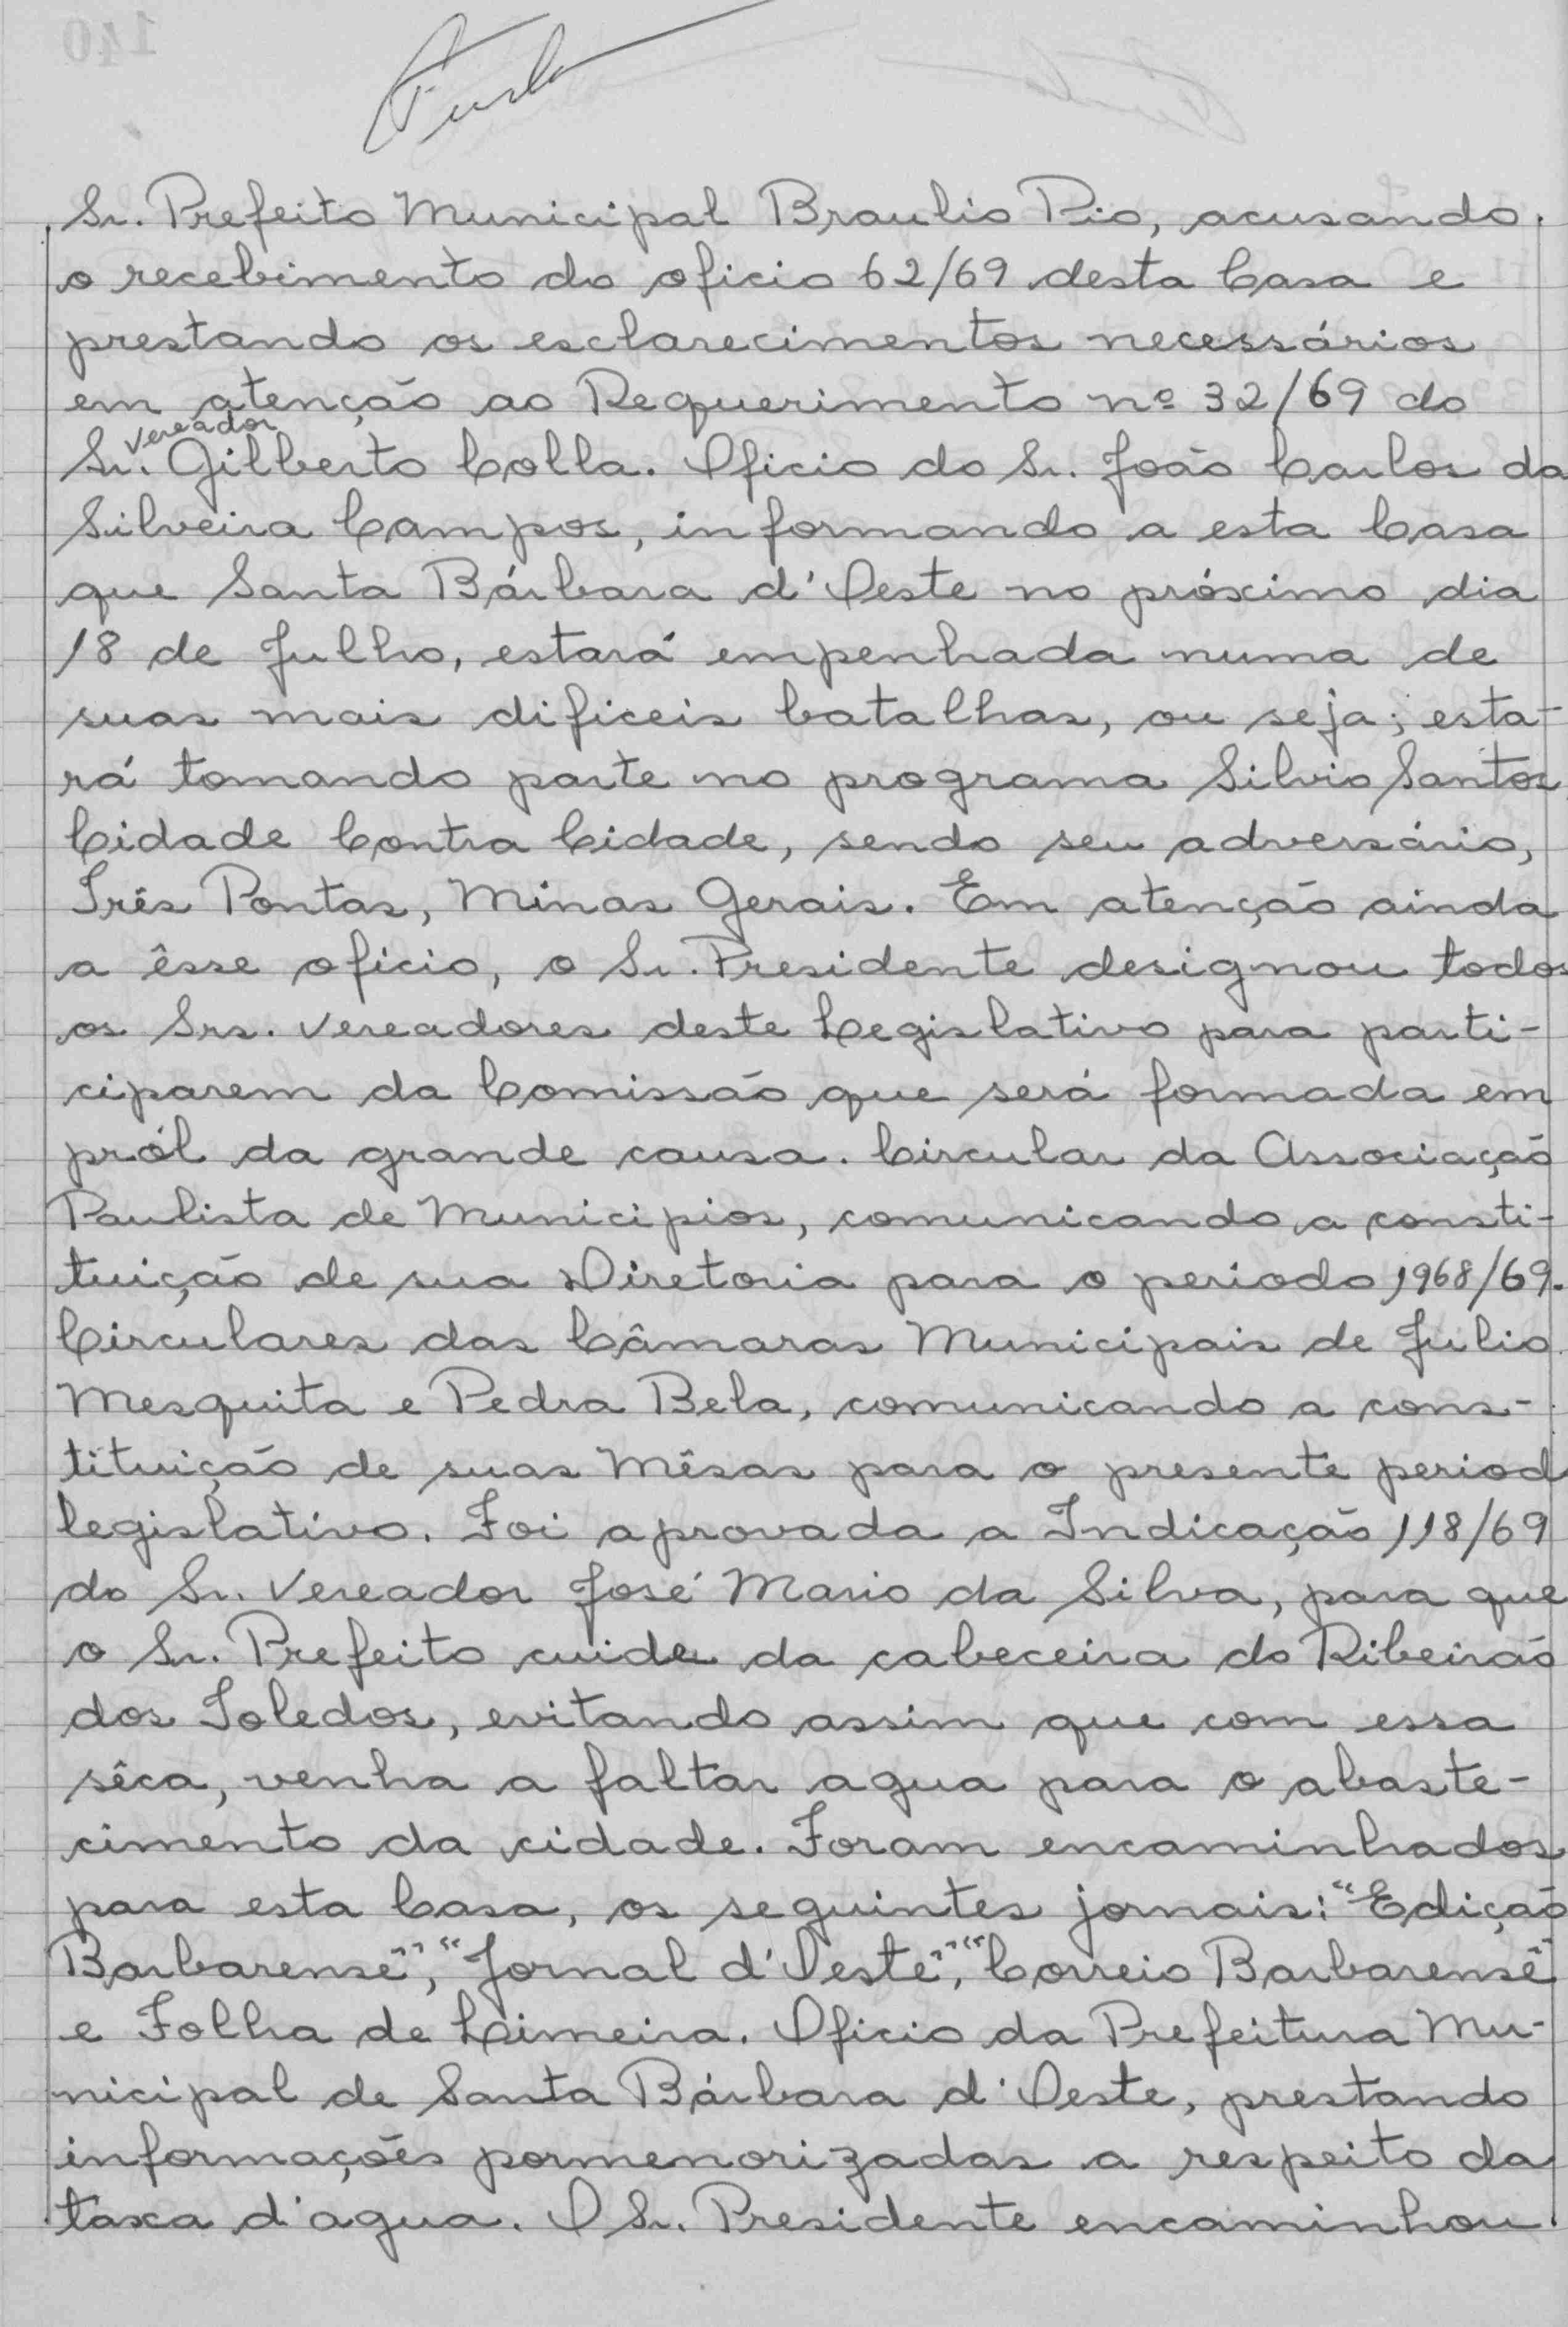 Sr. Prefeito Municipal Braulio Pio, acusando
o recebimento do oficio 62/69 desta Casa e
prestando os esclarecimentos necessários
em atenção ao Requerimento nº 32/69 do
vereador
Sr. Gilberto Colla. Oficio do Sr. João Carlos da
Silveira Campos, informando a esta Casa
que Santa Bárbara d'Oeste no próximo dia
18 de Julho, estará empenhada numa de
suas mais dificeis batalhas, ou seja; esta-
rá tomando parte no programa Silvio Santos
Cidade Contra Cidade, sendo seu adversário,
Três Pontas, Minas Gerais. Em atenção ainda
a êsse oficio, o Sr. Presidente designou todos
os Srs. vereadores deste Legislativo para parti-
ciparem da Comissão que será formada em
pról da grande causa. Circular da Associação
Paulista de Municipios, comunicando a consti-
tuição de sua Diretoria para o periodo 1968/69.
Circulares das Câmaras Municipais de Julio
Mesquita e Pedra Bela, comunicando a cons-
tituição de suas Mêsas para o presente period
legislativo. Foi aprovada a Indicação 118/69
do Sr. Vereador José Mario da Silva, para que
o Sr. Prefeito cuide da cabeceira do Ribeirão
dos Toledos, evitando assim que com essa
sêca, venha a faltar agua para o abaste-
cimento da cidade. Foram encaminhados
para esta Casa, os seguintes jornais: "Edição
Barbarense", "Jornal d'Oeste", "Correio Barbarense"
e Folha de Limeira. Oficio da Prefeitura Mu-
nicipal de Santa Bárbara d'Oeste, prestando
informações pormenorizadas a respeito da
taxa d'agua. O Sr. Presidente encaminhou